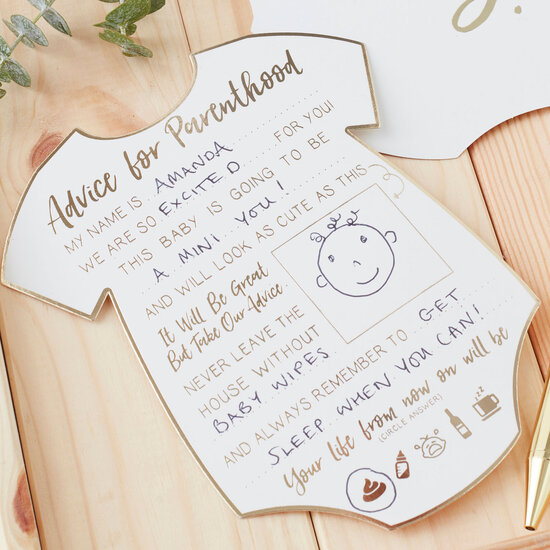 y.
Advice for Parenthood
MY NAME IS AMANDA
WE ARE SO EXCITED FOR YOU!
THIS BABY IS GOING TO BE
A MINI YOU!
AND WILL LOOK AS CUTE AS THIS
It Will Be Great
But Take Our Advice
NEVER LEAVE THE
HOUSE WITHOUT
BABY WIPES
AND ALWAYS REMEMBER TO GET
SLEEP WHEN YOU CAN!
Your life from now on will be
(CIRCLE ANSWER)